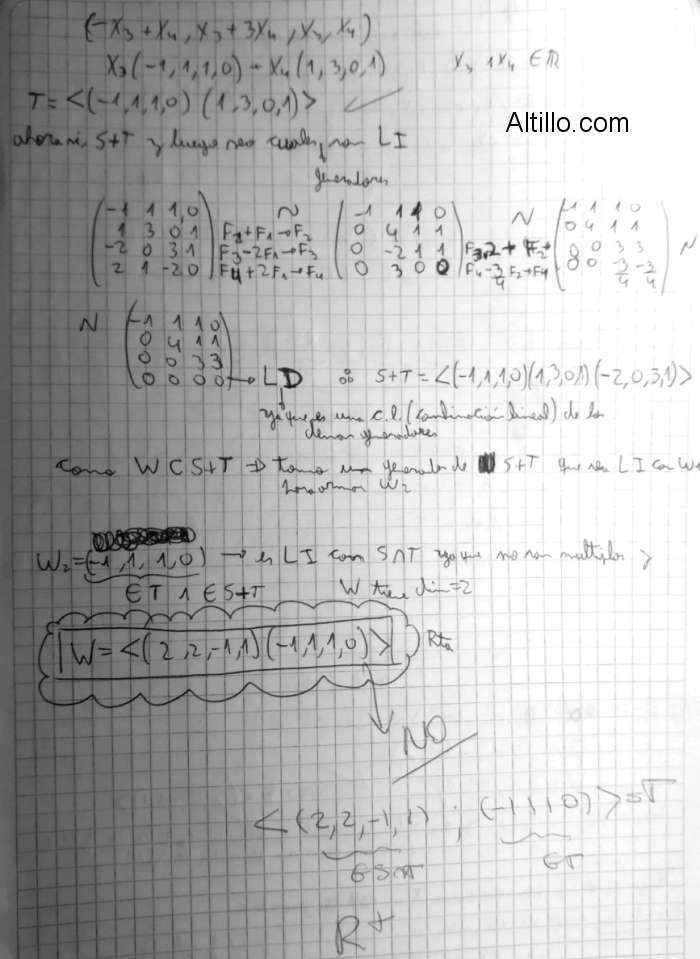 (-x₃ + x₄, x₃ + 3x₄, x₃, x₄)
x₃(-1,1,1,0) + x₄(1,3,0,1) x₃ ∧ x₄ ∈ ℝ
T = <(-1,1,1,0) (1,3,0,1)>
Altillo.com
ahora S+T y luego veo cuales son LI
generadores
(-1 1 1 0 N (-1 1 1 0 N (-1 1 1 0
1 3 0 1 F₂+F₁→F₂ 0 4 1 1 0 4 1 1
-2 0 3 1 F₃-2F₁→F₃ 0 -2 1 1 F₃.2+F₂→ 0 0 3 3 N
2 1 -2 0) F₄+2F₁→F₄ 0 3 0 0) F₄-3/4F₂→F₄ 0 0 -3/4 -3/4)
N (-1 1 1 0
0 4 1 1
0 0 3 3
0 0 0 0) → LD ∴ S+T = <(-1,1,1,0)(1,3,0,1)(-2,0,3,1)>
ya que es una c.l. (combinación lineal) de los
demas generadores
como W ⊂ S+T ⇒ tomo un generador de S+T que sea LI con W₁
para armar W₂
W₂ = (-1,1,1,0) → es LI con S∩T ya que no son multiplos y
∈ T ∧ ∈ S+T W tiene dim=2
W = <(2,2,-1,1)(-1,1,1,0)> Rta
NO
<(2,2,-1,1) ; (-1 1 1 0)> = T
∈ S∩T ∈ T
R+